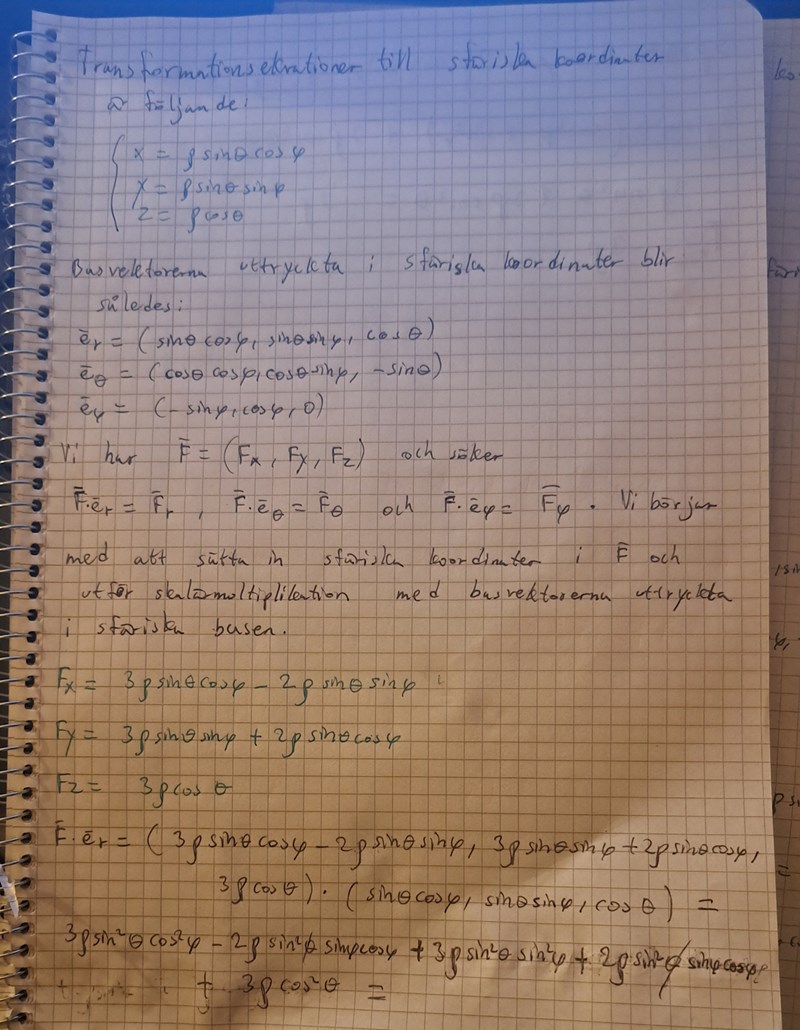 Transformationsekvationer till sfäriska koordinater
är följande:
x = ρ sinθ cosφ
y = ρ sinθ sinφ
z = ρ cosθ
Basvektorerna uttryckta i sfäriska koordinater blir
således:
ē_r = (sinθ cosφ, sinθ sinφ, cosθ)
ē_θ = (cosθ cosφ, cosθ sinφ, -sinθ)
ē_φ = (-sinφ, cosφ, 0)
Vi har F̄ = (F_x, F_y, F_z) och söker
F̄·ē_r = F̄_r , F̄·ē_θ = F̄_θ och F̄·ē_φ = F̄_φ . Vi börjar
med att sätta in sfäriska koordinater i F̄ och
utför skalärmultiplikation med basvektorerna uttryckta
i sfäriska basen.
F_x = 3ρ sinθ cosφ - 2ρ sinθ sinφ
F_y = 3ρ sinθ sinφ + 2ρ sinθ cosφ
F_z = 3ρ cosθ
F̄·ē_r = (3ρ sinθ cosφ - 2ρ sinθ sinφ, 3ρ sinθ sinφ + 2ρ sinθ cosφ,
3ρ cosθ) · (sinθ cosφ, sinθ sinφ, cosθ) =
3ρ sin²θ cos²φ - 2ρ sin²θ sinφ cosφ + 3ρ sin²θ sin²φ + 2ρ sin²θ sinφ cosφ
+ 3ρ cos²θ =